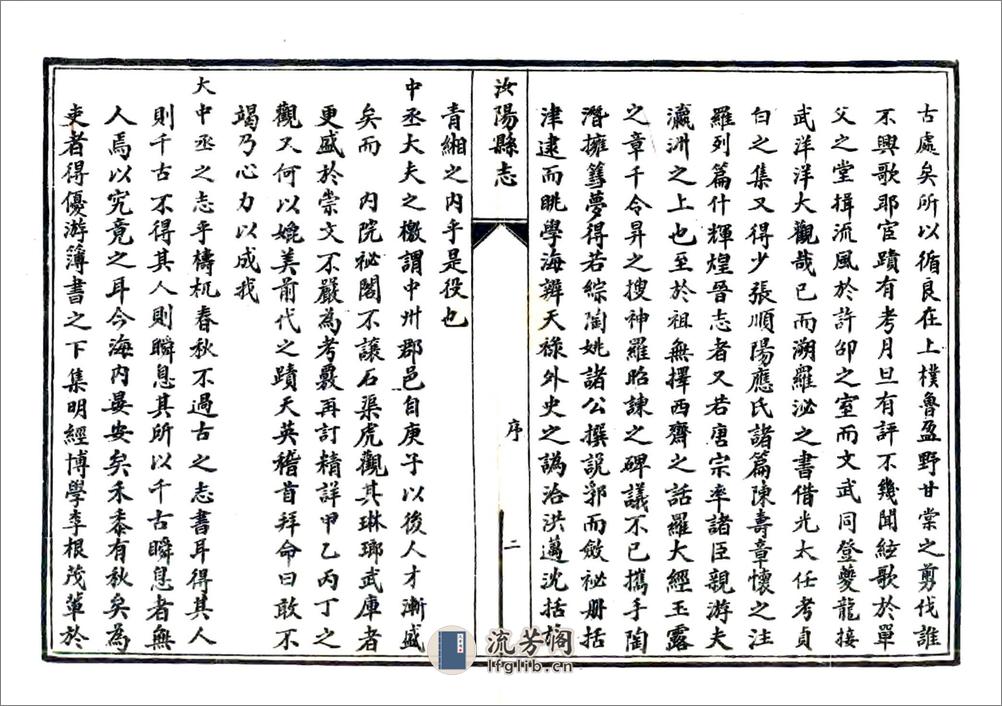 古處矣所以循良在上樸魯盈野甘棠之剪伐誰
不興歌耶宦蹟有考月旦有評不幾聞絃歌於單
父之堂揖流風於許邵之室而文武同登夔龍接
武洋洋大觀哉已而溯羅泌之書借光太任考貞
白之集又得少張順陽應氏諸篇陳壽章懷之注
羅列篇什輝煌晉志者又若唐宗率諸臣親游夫
瀛洲之上也至於祖無擇西齋之話羅大經玉露
之章千令昇之搜神羅昭諫之碑議不已攜手陶
潛擁篲夢得若綜陶姚諸公撰說郛而斂祕册括
津逮而眺學海辨天祿外史之譌洽洪邁沈括
汝陽縣志
序
二
青緗之內乎是役也
中丞大夫之檄謂中州郡邑自庚子以後人才漸盛
矣而 內院祕閣不讓石渠虎觀其琳瑯武庫者
更盛於崇文不嚴為考覈再訂精詳甲乙丙丁之
觀又何以媲美前代之蹟天英稽首拜命曰敢不
竭乃心力以成我
大中丞之志乎檮杌春秋不過古之志書耳得其人
則千古不得其人則瞬息其所以千古瞬息者無
人焉以究竟之耳今海內晏安矣禾黍有秋矣為
吏者得優游簿書之下集明經博學李根茂軰於
流芳阁
lfglib.cn